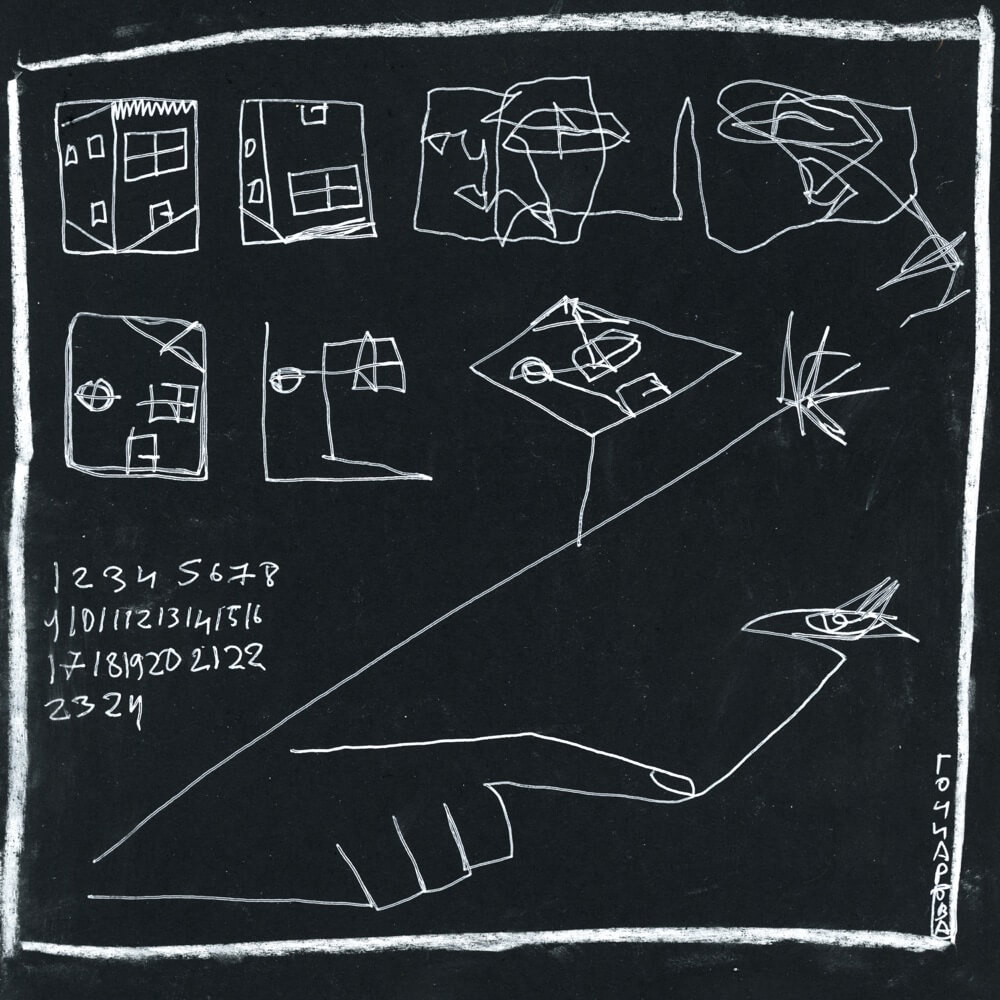 1 2 3 4 5 6 7 8
9 10 11 12 13 14 15 16
17 18 19 20 21 22
23 24